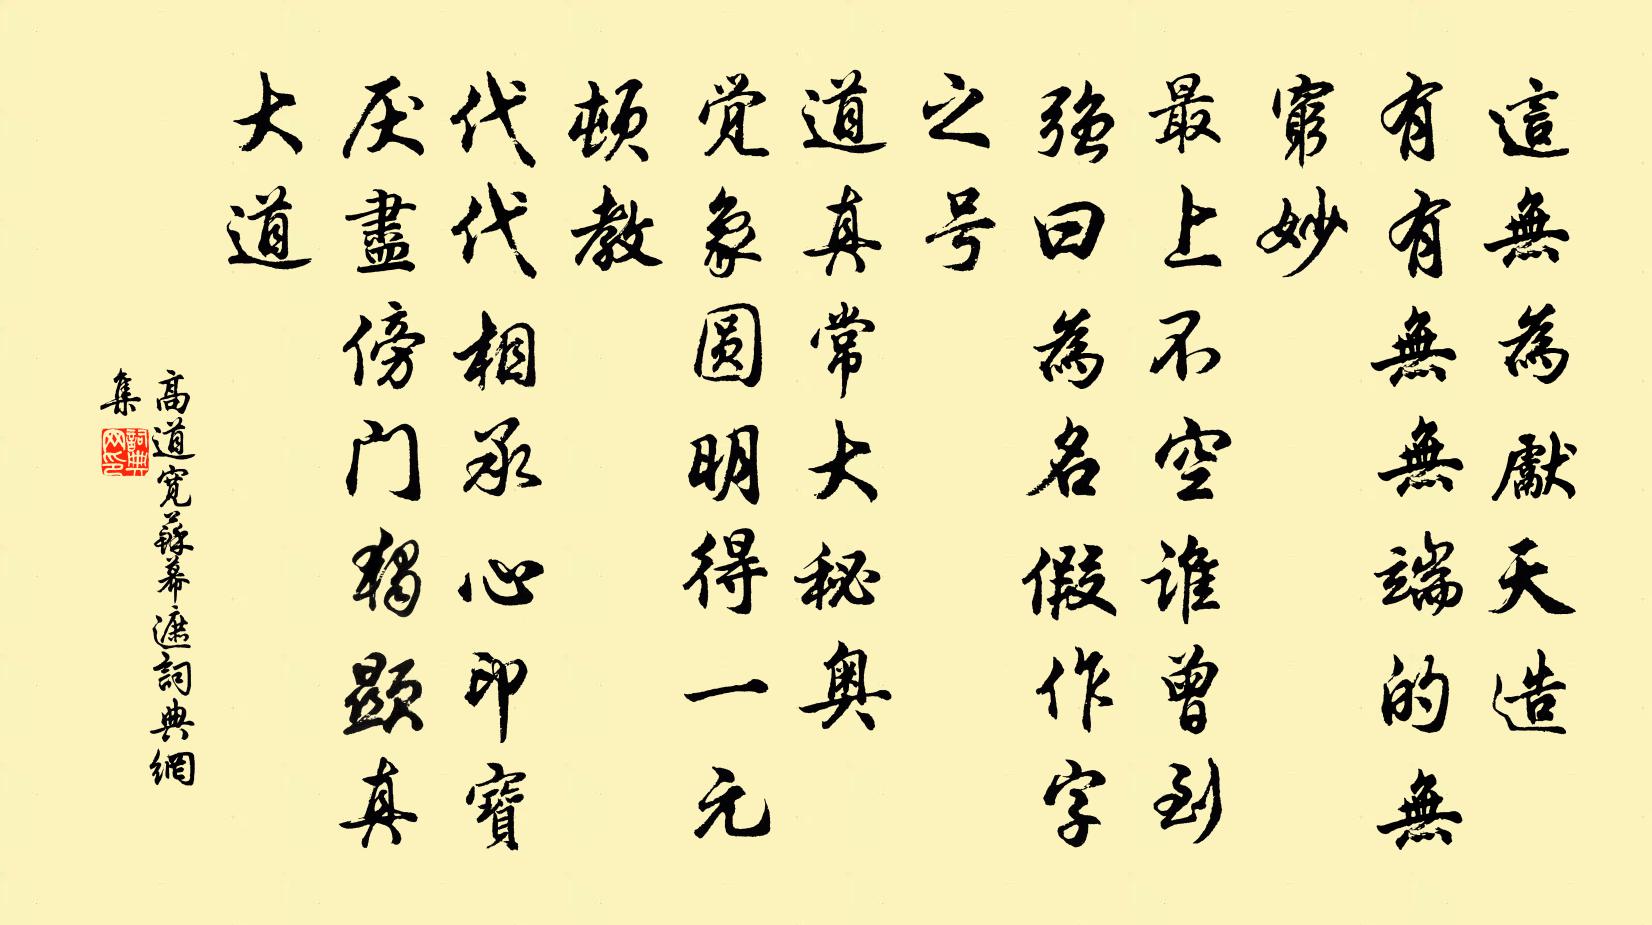 這無為獻天造
有有無無端的無
窮妙
最上不空谁曾到
強曰為名假作字
之号
道真常大秘奥
觉象圆明得一元
頓教
代代相承心印寶
厌盡傍门獨顯真
大道
高道寬蘇幕遮詞典網
集
詞典
网印